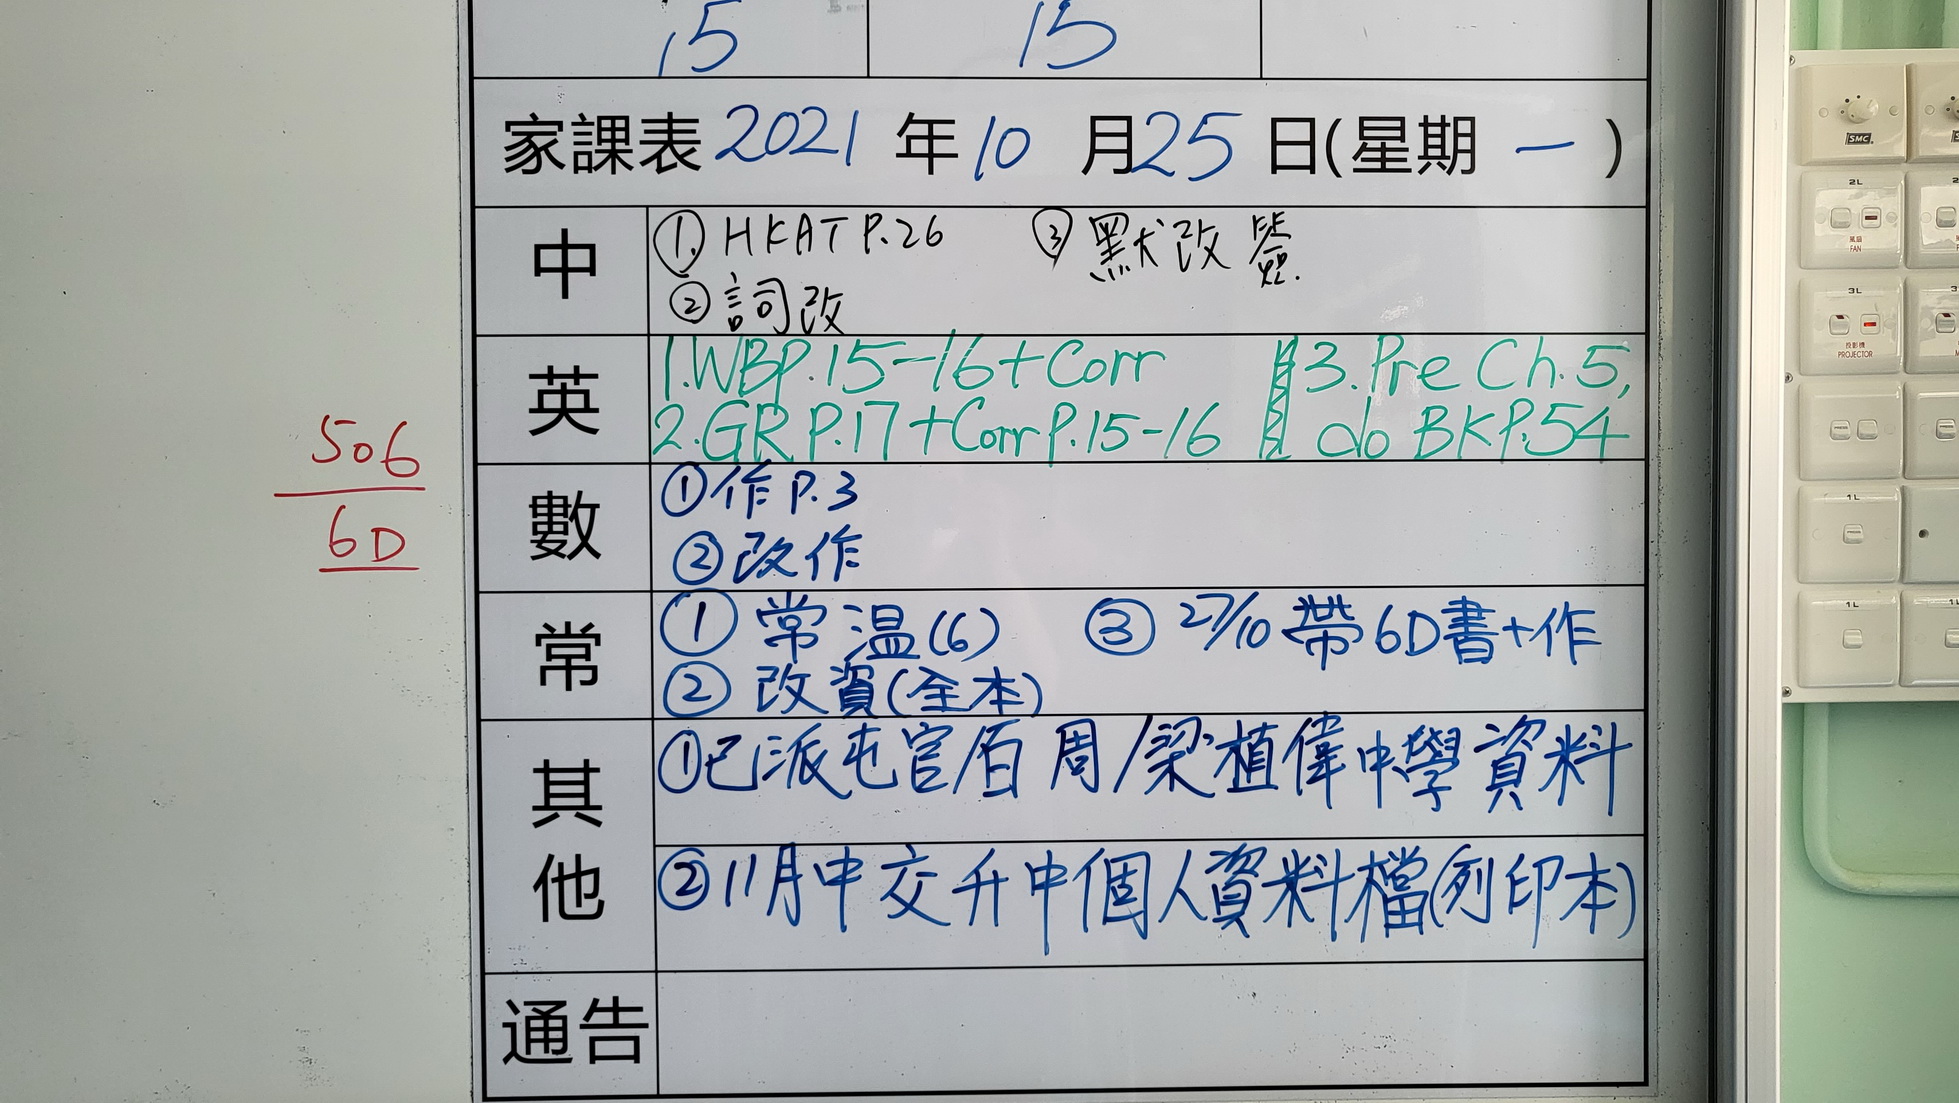 15 15
家課表 2021 年 10 月 25 日(星期 一 )
中 ① HKAT P.26 ③ 默改簽.
② 詞改
英 1.WBP.15-16+Corr 3.Pre Ch.5,
2.GR P.17+Corr P.15-16 do BKP.54
506
6D
數 ①作P.3
②改作
常 ① 常温(6) ③ 27/10 帶6D書+作
② 改資(全本)
其他 ①已派屯官 周/梁植偉中學資料
②11月中交升中個人資料檔(列印本)
通告
SMC
2L
風扇
FAN
3L
投影機
PROJECTOR
1L
1L